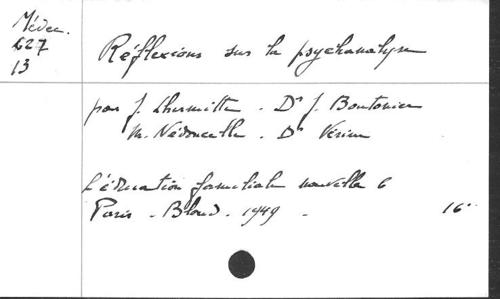 Médec.
627
13
Réflexions sur la psychanalyse
par J. Lhermitte . Dr J. Boutonier
M. Nédoncelle . Dr Vérine
L'éducation familiale nouvelle 6
Paris . Bloud . 1949 .
16°